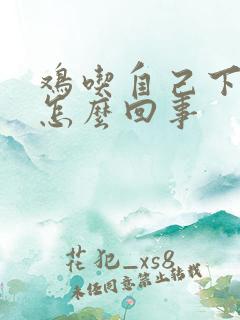 鸡吃自己下
怎麼回事
花犯_xs8
未经同意禁止转载